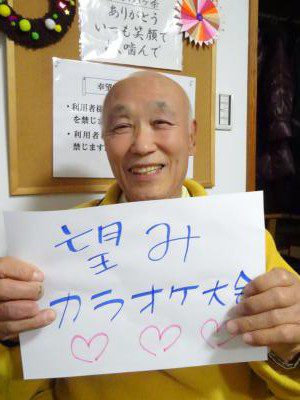 ありがとう
いつも笑顔で
・利用者
を禁じ
・利用者
禁じます
望み
カラオケ大会